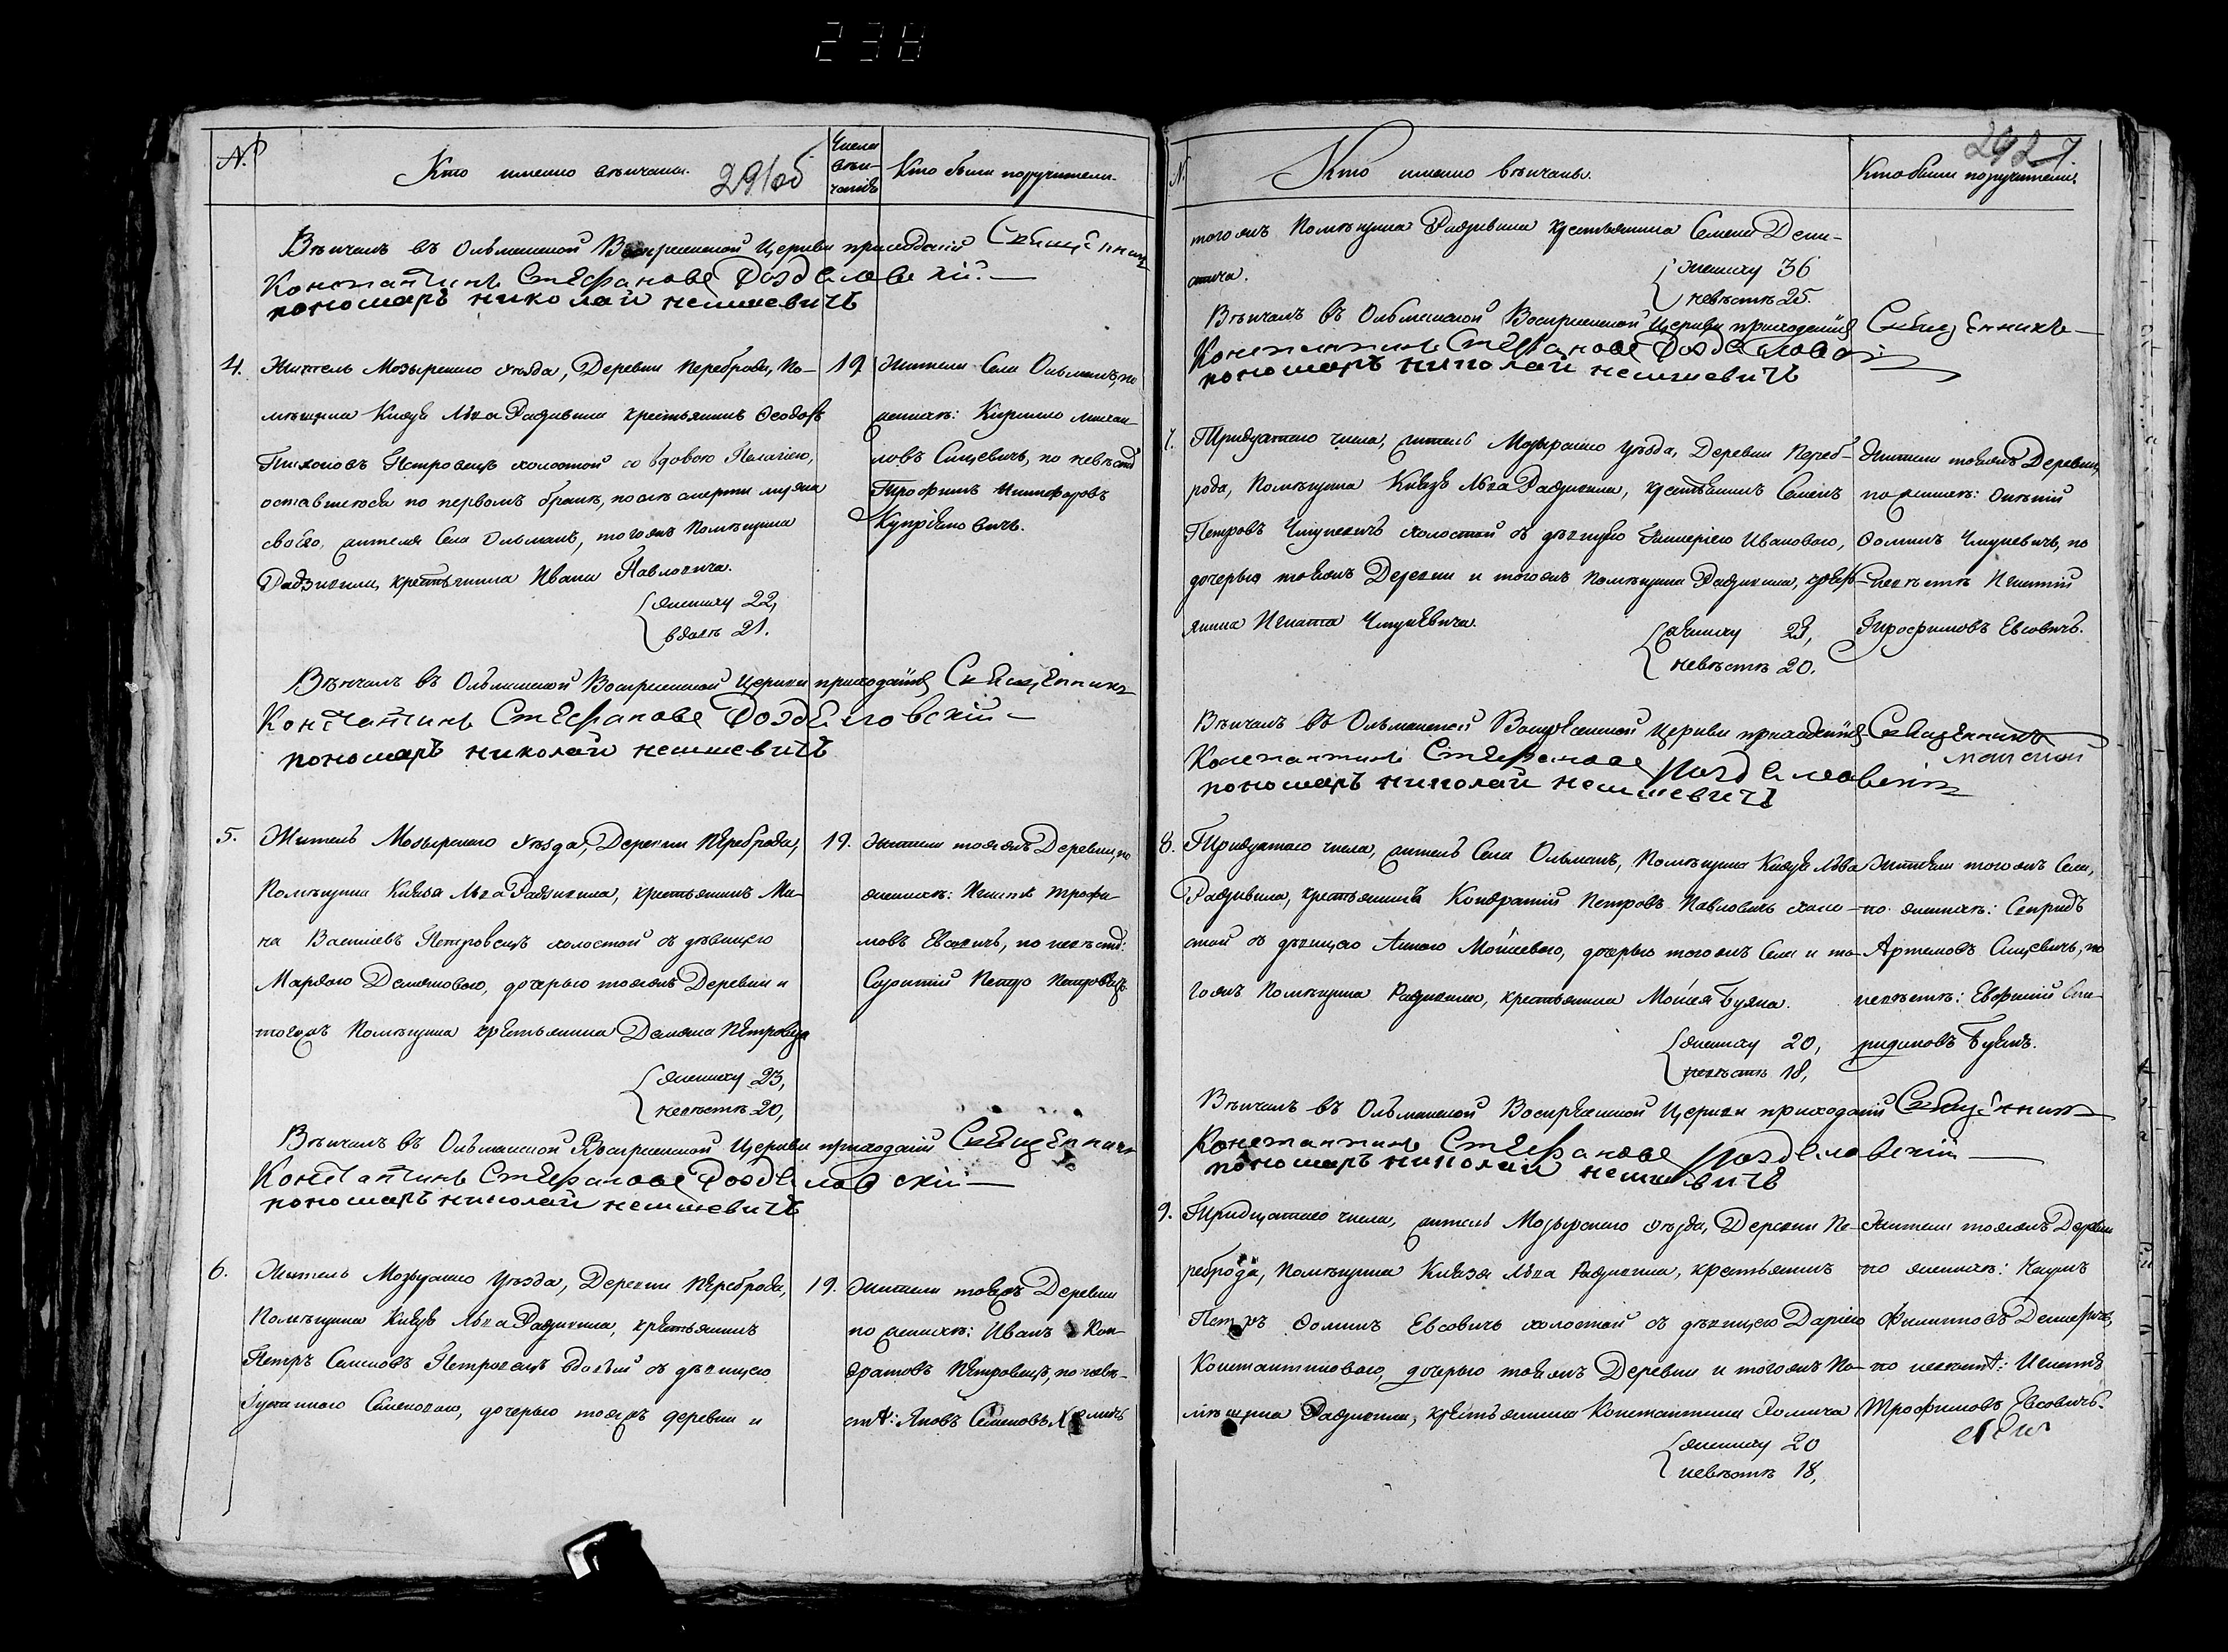 238
№
Кто именно венчаны.
291об
Числа вѣн-чанія
Кто были поручители.
Вѣнчалъ въ Ольманской Воскресенской Церкви приходскій Священникъ
Константинъ Стефановъ Роздяловскій.
пономаръ николай немшевичъ
4.
Житель Мозырского уѣзда, Деревни Переброды, По-
мѣщика Князя Льва Радзивила крестьянинъ Ѳеодоръ
Тихоновъ Петровецъ холостой со вдовою Пелагіею,
оставшеюся по первомъ бракѣ, послѣ смерти мужа
своего, жителя Села Ольманъ, тогожъ Помѣщика
Радзивила, крестьянина Ивана Павловича.
жениху 22,
вдовѣ 21.
19
Жители Села Ольманъ, по
женихѣ: Кирилло
Сицевичъ, по невѣстѣ
Трофимъ Никифоровъ
Купріяновичъ.
Вѣнчалъ въ Ольманской Воскресенской Церкви приходскій Священникъ
Константинъ Стефановъ Роздяловскій
пономаръ николай немшевичъ
5.
Житель Мозырского уѣзда, Деревни Переброды,
Помѣщика Князя Льва Радзивила, крестьянинъ Ми-
на Васильевъ Петровецъ холостой съ дѣвицею
Марѳою Демяновою, дочерью тояжъ Деревни и
тогожъ Помѣщика крестьянина Демяна Петровца
жениху 23,
невѣстѣ 20,
19.
Жители тояжъ Деревни, по
женихѣ: Игнатъ Трофи-
мовъ Евсовичъ, по невѣстѣ:
Петровецъ.
Вѣнчалъ въ Ольманской Воскресенской Церкви приходскій Священникъ
Константинъ Стефановъ Роздяловскій
пономаръ николай немшевичъ
6.
Житель Мозырского Уѣзда, Деревни Переброды,
Помѣщика Князя Льва Радзивила, крестьянинъ
Петръ Семеновъ Петровецъ вдовый съ дѣвицею
Іуліанною Семеновою, дочерью тояжъ деревни и
19.
Жители тояжъ Деревни
по женихѣ: Иванъ Кон-
дратовъ Петровецъ, по невѣ-
стѣ: Яковъ Семеновъ
N.
Кто именно вѣнчаны.
292
7.
Кто были поручители.
тогожъ Помѣщика Радзивила крестьянина Семена Дени-
жениху 36
невѣстѣ 25.
Вѣнчалъ въ Ольманской Воскресенской Церкви приходскій Священникъ
Константинъ Стефановъ Роздяловскій
пономаръ николай немшевичъ
7.
Тридцатого числа, житель Мозырского Уѣзда, Деревни Переб-
рода, Помѣщика Князя Льва Радзивила, крестьянинъ Семенъ
Петровъ Чмуневичъ холостой съ дѣвицею Гликеріею Ивановою,
дочерью тояжъ Деревни и тогожъ помѣщика Радзивила, крест-
янина Игната Чмуневича
жениху 23,
невѣстѣ 20.
Жители тояжъ Деревни,
по женихѣ:
Ѳоминъ Чмуневичъ, по
невѣстѣ Игнатій
Трофимовъ Евсовичъ.
Вѣнчалъ въ Ольманской Воскресенской Церкви приходскій Священникъ
Константинъ Стефановъ Роздяловскій
пономаръ николай немшевичъ
8.
Тридцатого числа, житель Села Ольманъ, Помѣщика Князя Льва
Радзивила, крестьянинъ Кондратій Петровъ Павловичъ холо-
стой съ дѣвицею Анною Мойсеевою, дочерью тогожъ Села и то-
гожъ Помѣщика Радзивила, крестьянина Мойсея Буяна.
жениху 20,
невѣстѣ 18,
Жители тогожъ Села,
по женихѣ:
Артемовъ Сицевичъ, по
невѣстѣ: Евфимій Спи-
ридоновъ Буянъ.
Вѣнчалъ въ Ольманской Воскресенской Церкви приходскій Священникъ
Константинъ Стефановъ Роздяловскій
пономаръ николай немшевичъ
9.
Тридцатого числа, житель Мозырского уѣзда, Деревни Пе-
реброда, Помѣщика Князя Льва Радзивила, крестьянинъ
Петръ Ѳоминъ Евсовичъ холостой съ дѣвицею Даріею
Константиновою, дочерью тояжъ Деревни и тогожъ По-
мѣщика Радзивила, крестьянина Константина Хомича
жениху 20
невѣстѣ 18,
Жители тояжъ Деревни
по женихѣ: Наумъ
Филиповъ
по невѣстѣ: Игнатъ
Трофимовъ Евсовичъ.